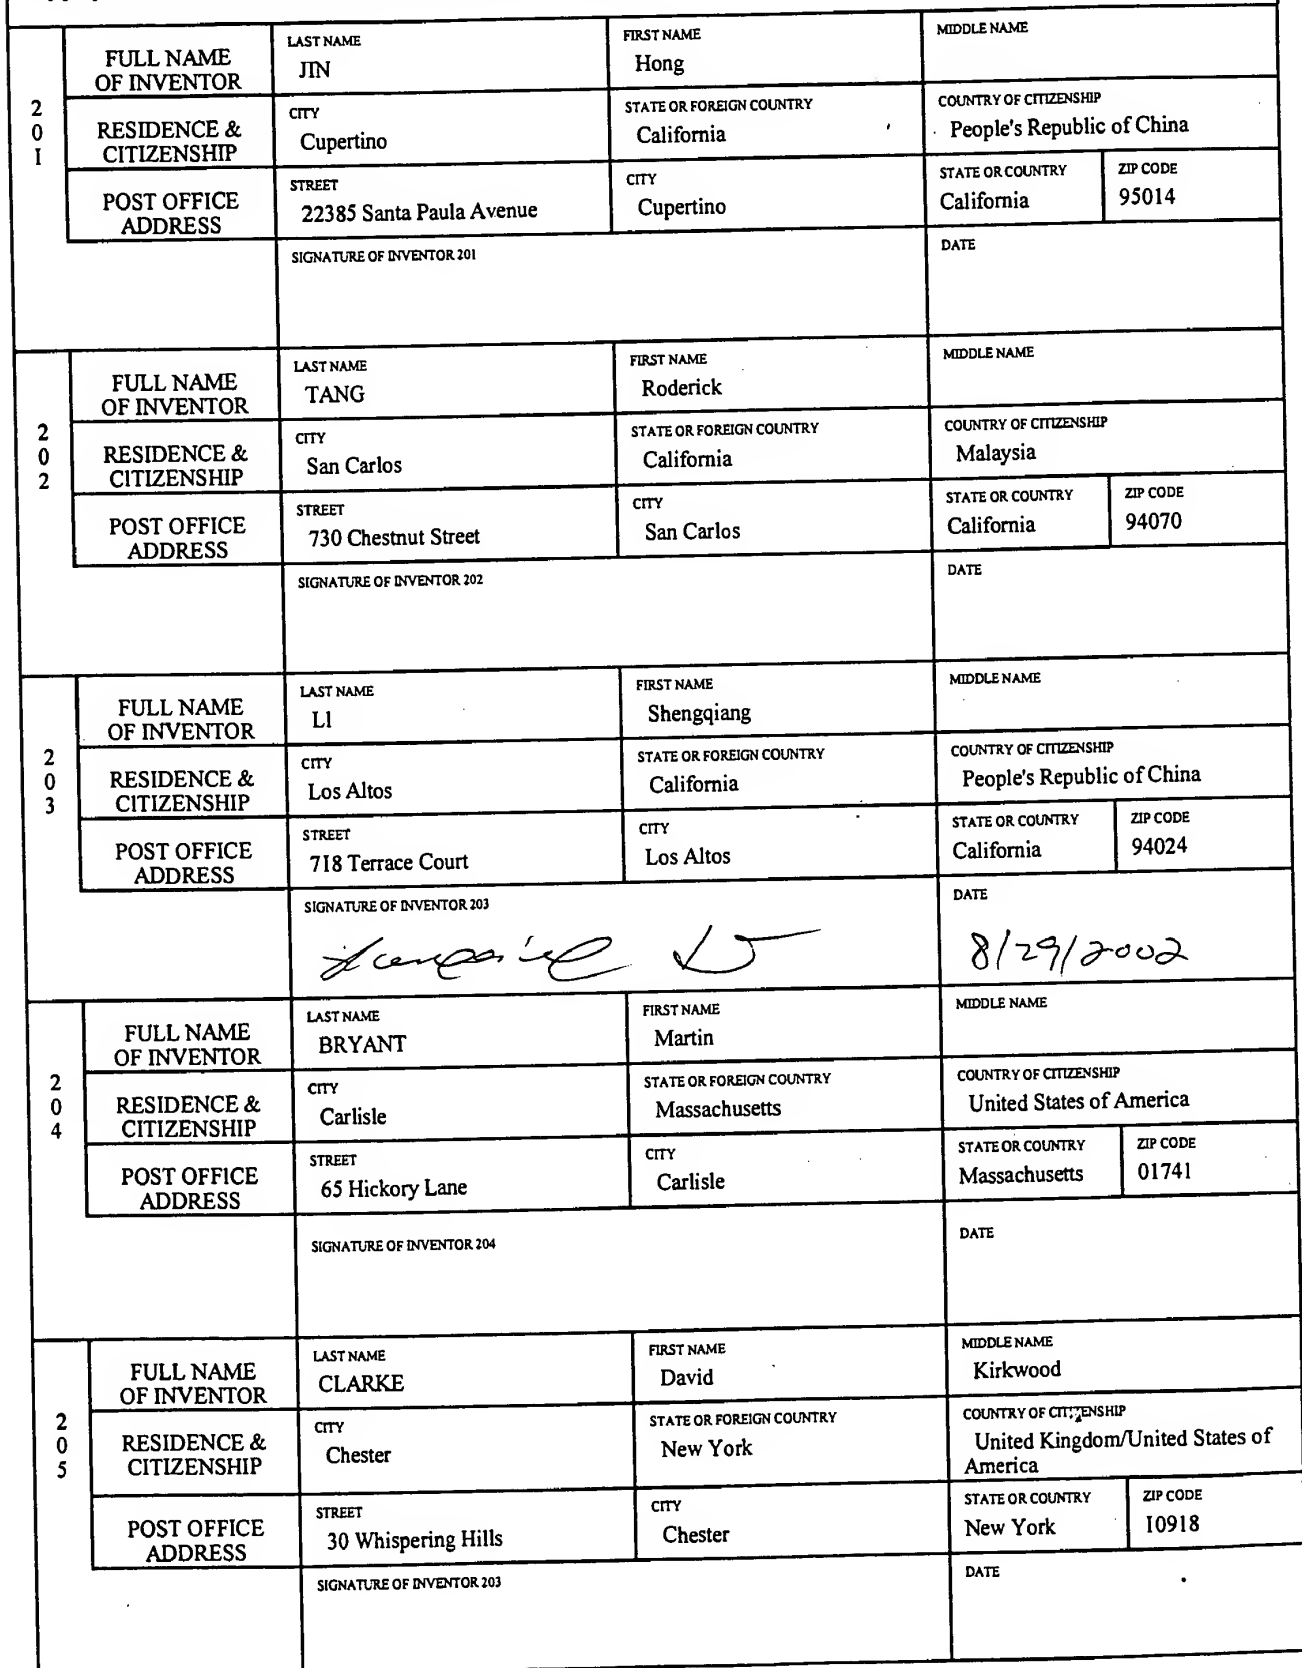 2
0
1
FULL NAME
OF INVENTOR
LAST NAME
JIN
FIRST NAME
Hong
MIDDLE NAME
RESIDENCE &
CITIZENSHIP
CITY
Cupertino
STATE OR FOREIGN COUNTRY
California
COUNTRY OF CITIZENSHIP
People's Republic of China
POST OFFICE
ADDRESS
STREET
22385 Santa Paula Avenue
CITY
Cupertino
STATE OR COUNTRY
California
ZIP CODE
95014
SIGNATURE OF INVENTOR 201
DATE
2
0
2
FULL NAME
OF INVENTOR
LAST NAME
TANG
FIRST NAME
Roderick
MIDDLE NAME
RESIDENCE &
CITIZENSHIP
CITY
San Carlos
STATE OR FOREIGN COUNTRY
California
COUNTRY OF CITIZENSHIP
Malaysia
POST OFFICE
ADDRESS
STREET
730 Chestnut Street
CITY
San Carlos
STATE OR COUNTRY
California
ZIP CODE
94070
SIGNATURE OF INVENTOR 202
DATE
2
0
3
FULL NAME
OF INVENTOR
LAST NAME
LI
FIRST NAME
Shengqiang
MIDDLE NAME
RESIDENCE &
CITIZENSHIP
CITY
Los Altos
STATE OR FOREIGN COUNTRY
California
COUNTRY OF CITIZENSHIP
People's Republic of China
POST OFFICE
ADDRESS
STREET
718 Terrace Court
CITY
Los Altos
STATE OR COUNTRY
California
ZIP CODE
94024
SIGNATURE OF INVENTOR 203
DATE
8/29/2002
2
0
4
FULL NAME
OF INVENTOR
LAST NAME
BRYANT
FIRST NAME
Martin
MIDDLE NAME
RESIDENCE &
CITIZENSHIP
CITY
Carlisle
STATE OR FOREIGN COUNTRY
Massachusetts
COUNTRY OF CITIZENSHIP
United States of America
POST OFFICE
ADDRESS
STREET
65 Hickory Lane
CITY
Carlisle
STATE OR COUNTRY
Massachusetts
ZIP CODE
01741
SIGNATURE OF INVENTOR 204
DATE
2
0
5
FULL NAME
OF INVENTOR
LAST NAME
CLARKE
FIRST NAME
David
MIDDLE NAME
Kirkwood
RESIDENCE &
CITIZENSHIP
CITY
Chester
STATE OR FOREIGN COUNTRY
New York
COUNTRY OF CITIZENSHIP
United Kingdom/United States of
America
POST OFFICE
ADDRESS
STREET
30 Whispering Hills
CITY
Chester
STATE OR COUNTRY
New York
ZIP CODE
10918
SIGNATURE OF INVENTOR 203
DATE